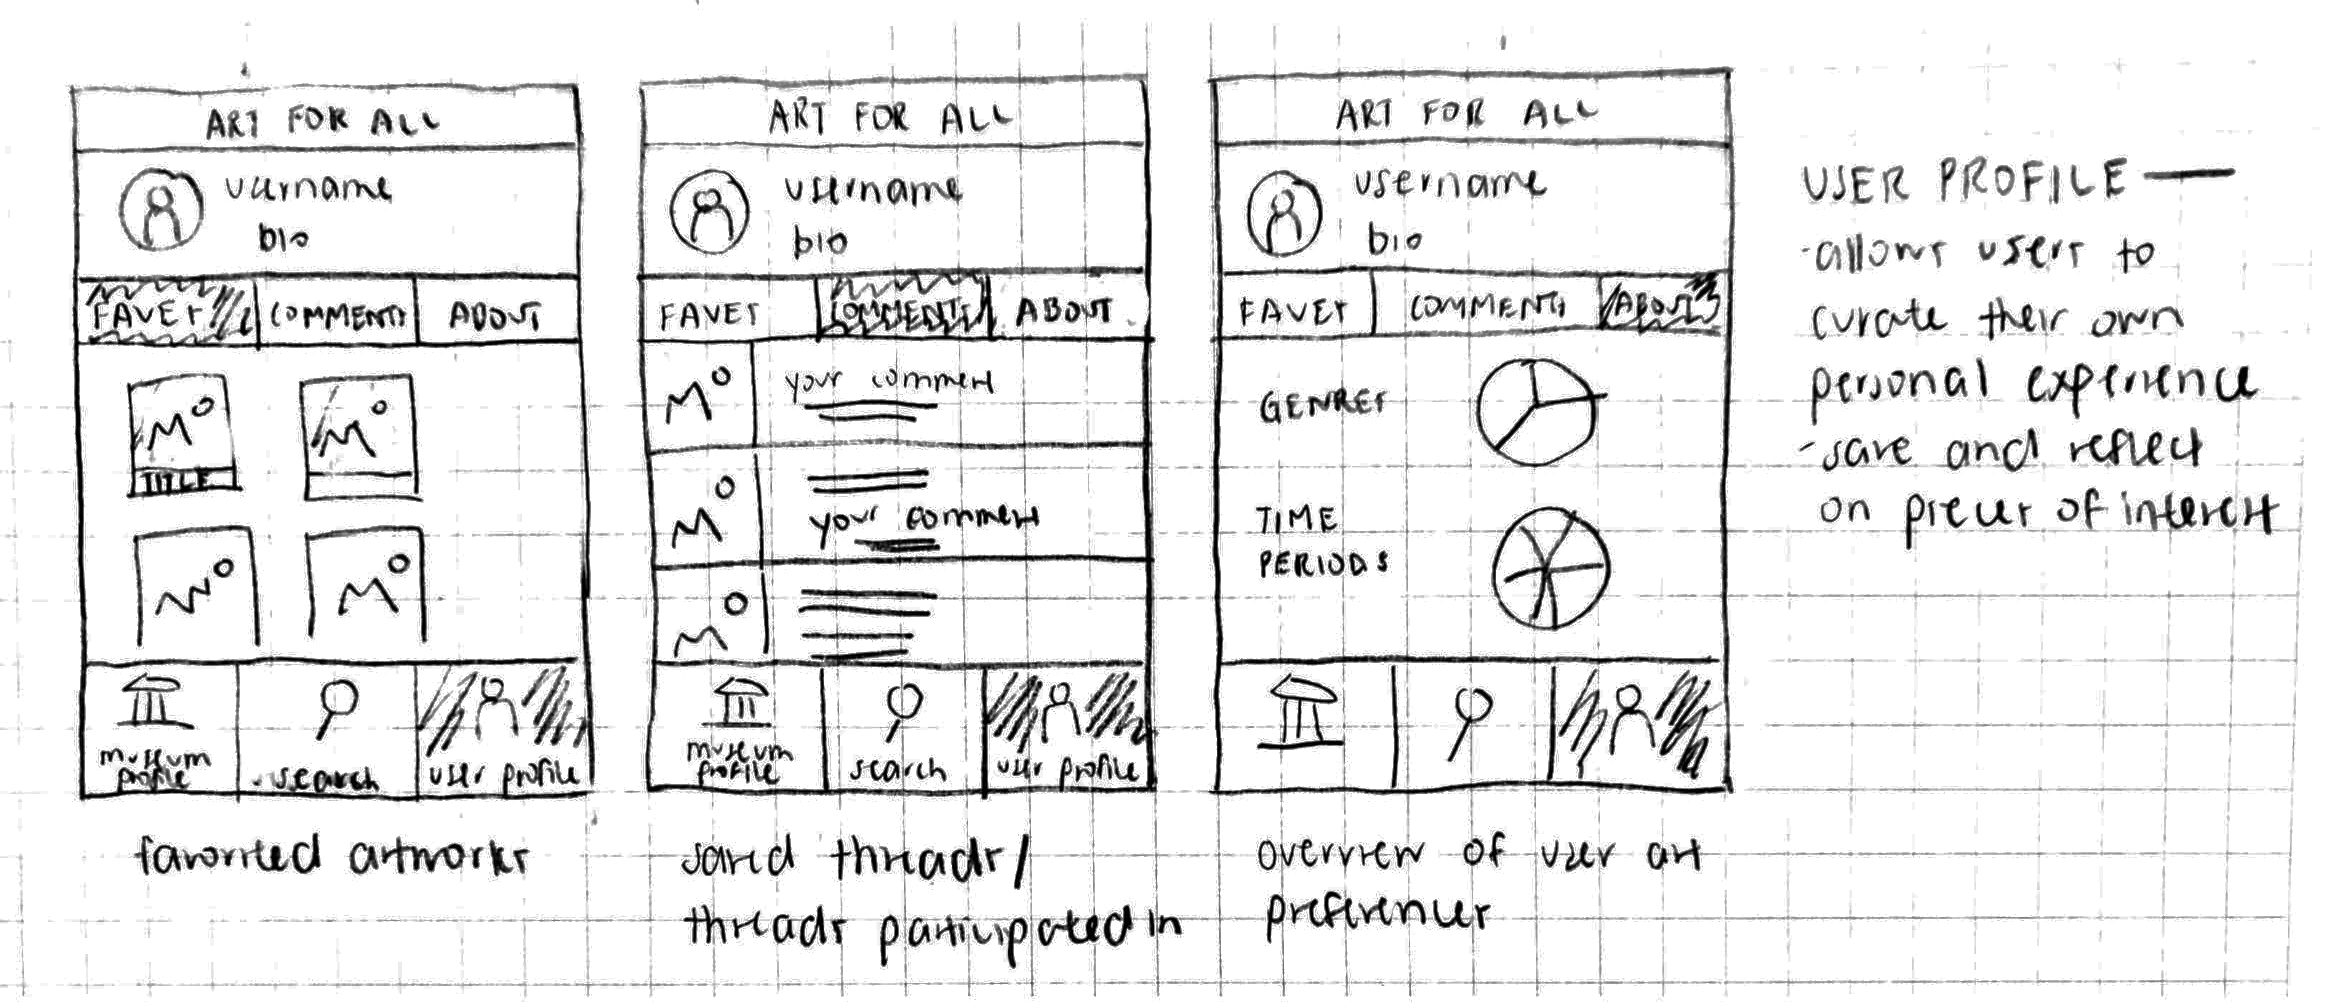 ART FOR ALL
username
bio
FAVES
COMMENTS
ABOUT
TITLE
museum
profile
search
user profile
favorited artworks
ART FOR ALL
username
bio
FAVES
COMMENTS
ABOUT
your comment
your comment
museum
profile
search
user profile
saved threads/
threads participated in
ART FOR ALL
username
bio
FAVES
COMMENTS
ABOUT
GENRES
TIME
PERIODS
overview of user art
preferences
USER PROFILE —
-allows users to
curate their own
personal experience
-save and reflect
on pieces of interest